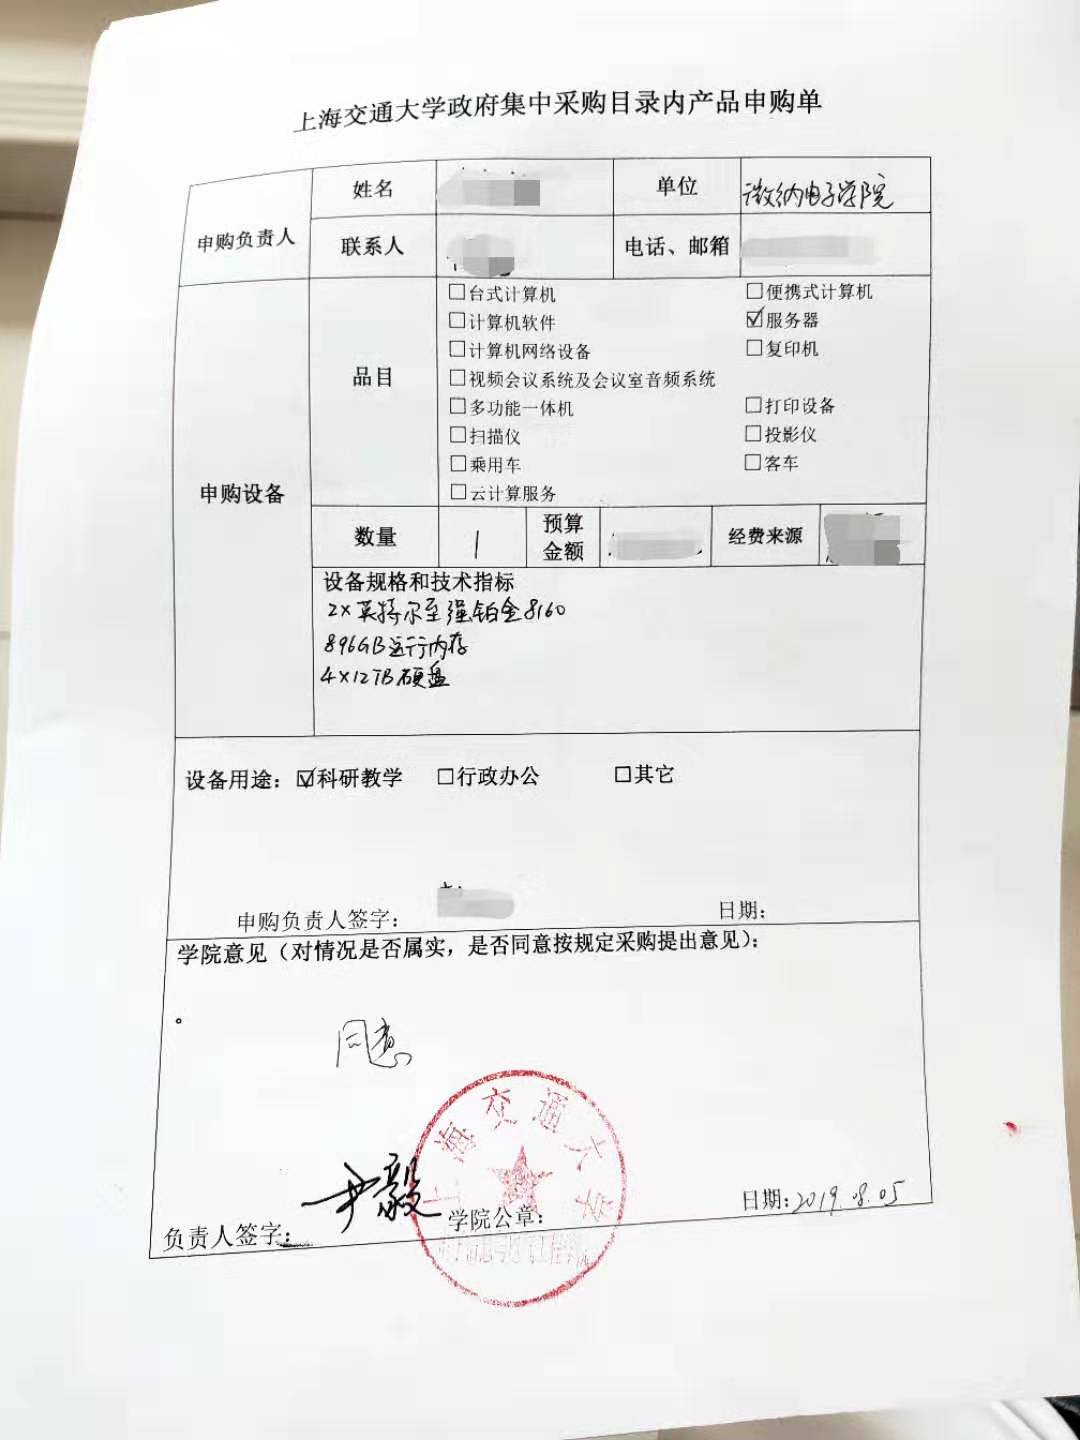 上海交通大学政府集中采购目录内产品申购单
申购负责人 姓名 单位 微纳电子学院
联系人 电话、邮箱
申购设备 品目
□台式计算机 □便携式计算机
□计算机软件 ☑服务器
□计算机网络设备 □复印机
□视频会议系统及会议室音频系统
□多功能一体机 □打印设备
□扫描仪 □投影仪
□乘用车 □客车
□云计算服务
数量 1 预算金额 经费来源
设备规格和技术指标
2×英特尔至强铂金8160
896GB运行内存
4×12TB硬盘
设备用途：☑科研教学 □行政办公 □其它
申购负责人签字： 日期：
学院意见（对情况是否属实，是否同意按规定采购提出意见）：
。
同意
上海交通大学
负责人签字： 尹毅 学院公章： 日期：2019.08.05